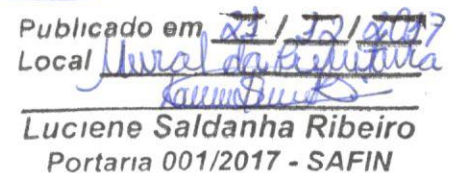 Publicado em 21 / 12 / 2017
Local Mural da Prefeitura
Luciene Saldanha Ribeiro
Portaria 001/2017 - SAFIN